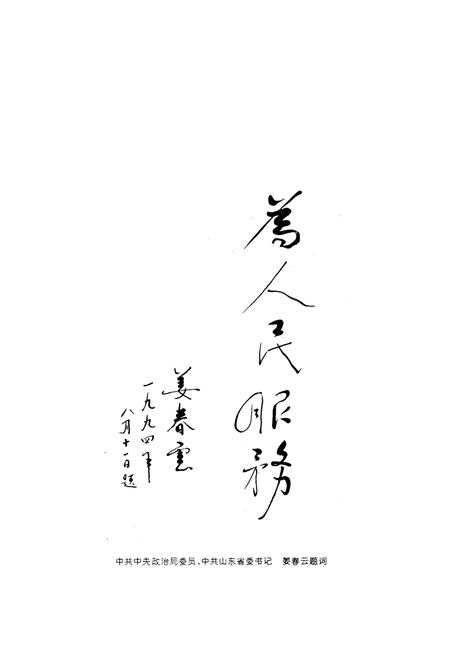 為人民服務
姜春雲
一九九四年
八月十一日題
中共中央政治局委员、中共山东省委书记 姜春云题词